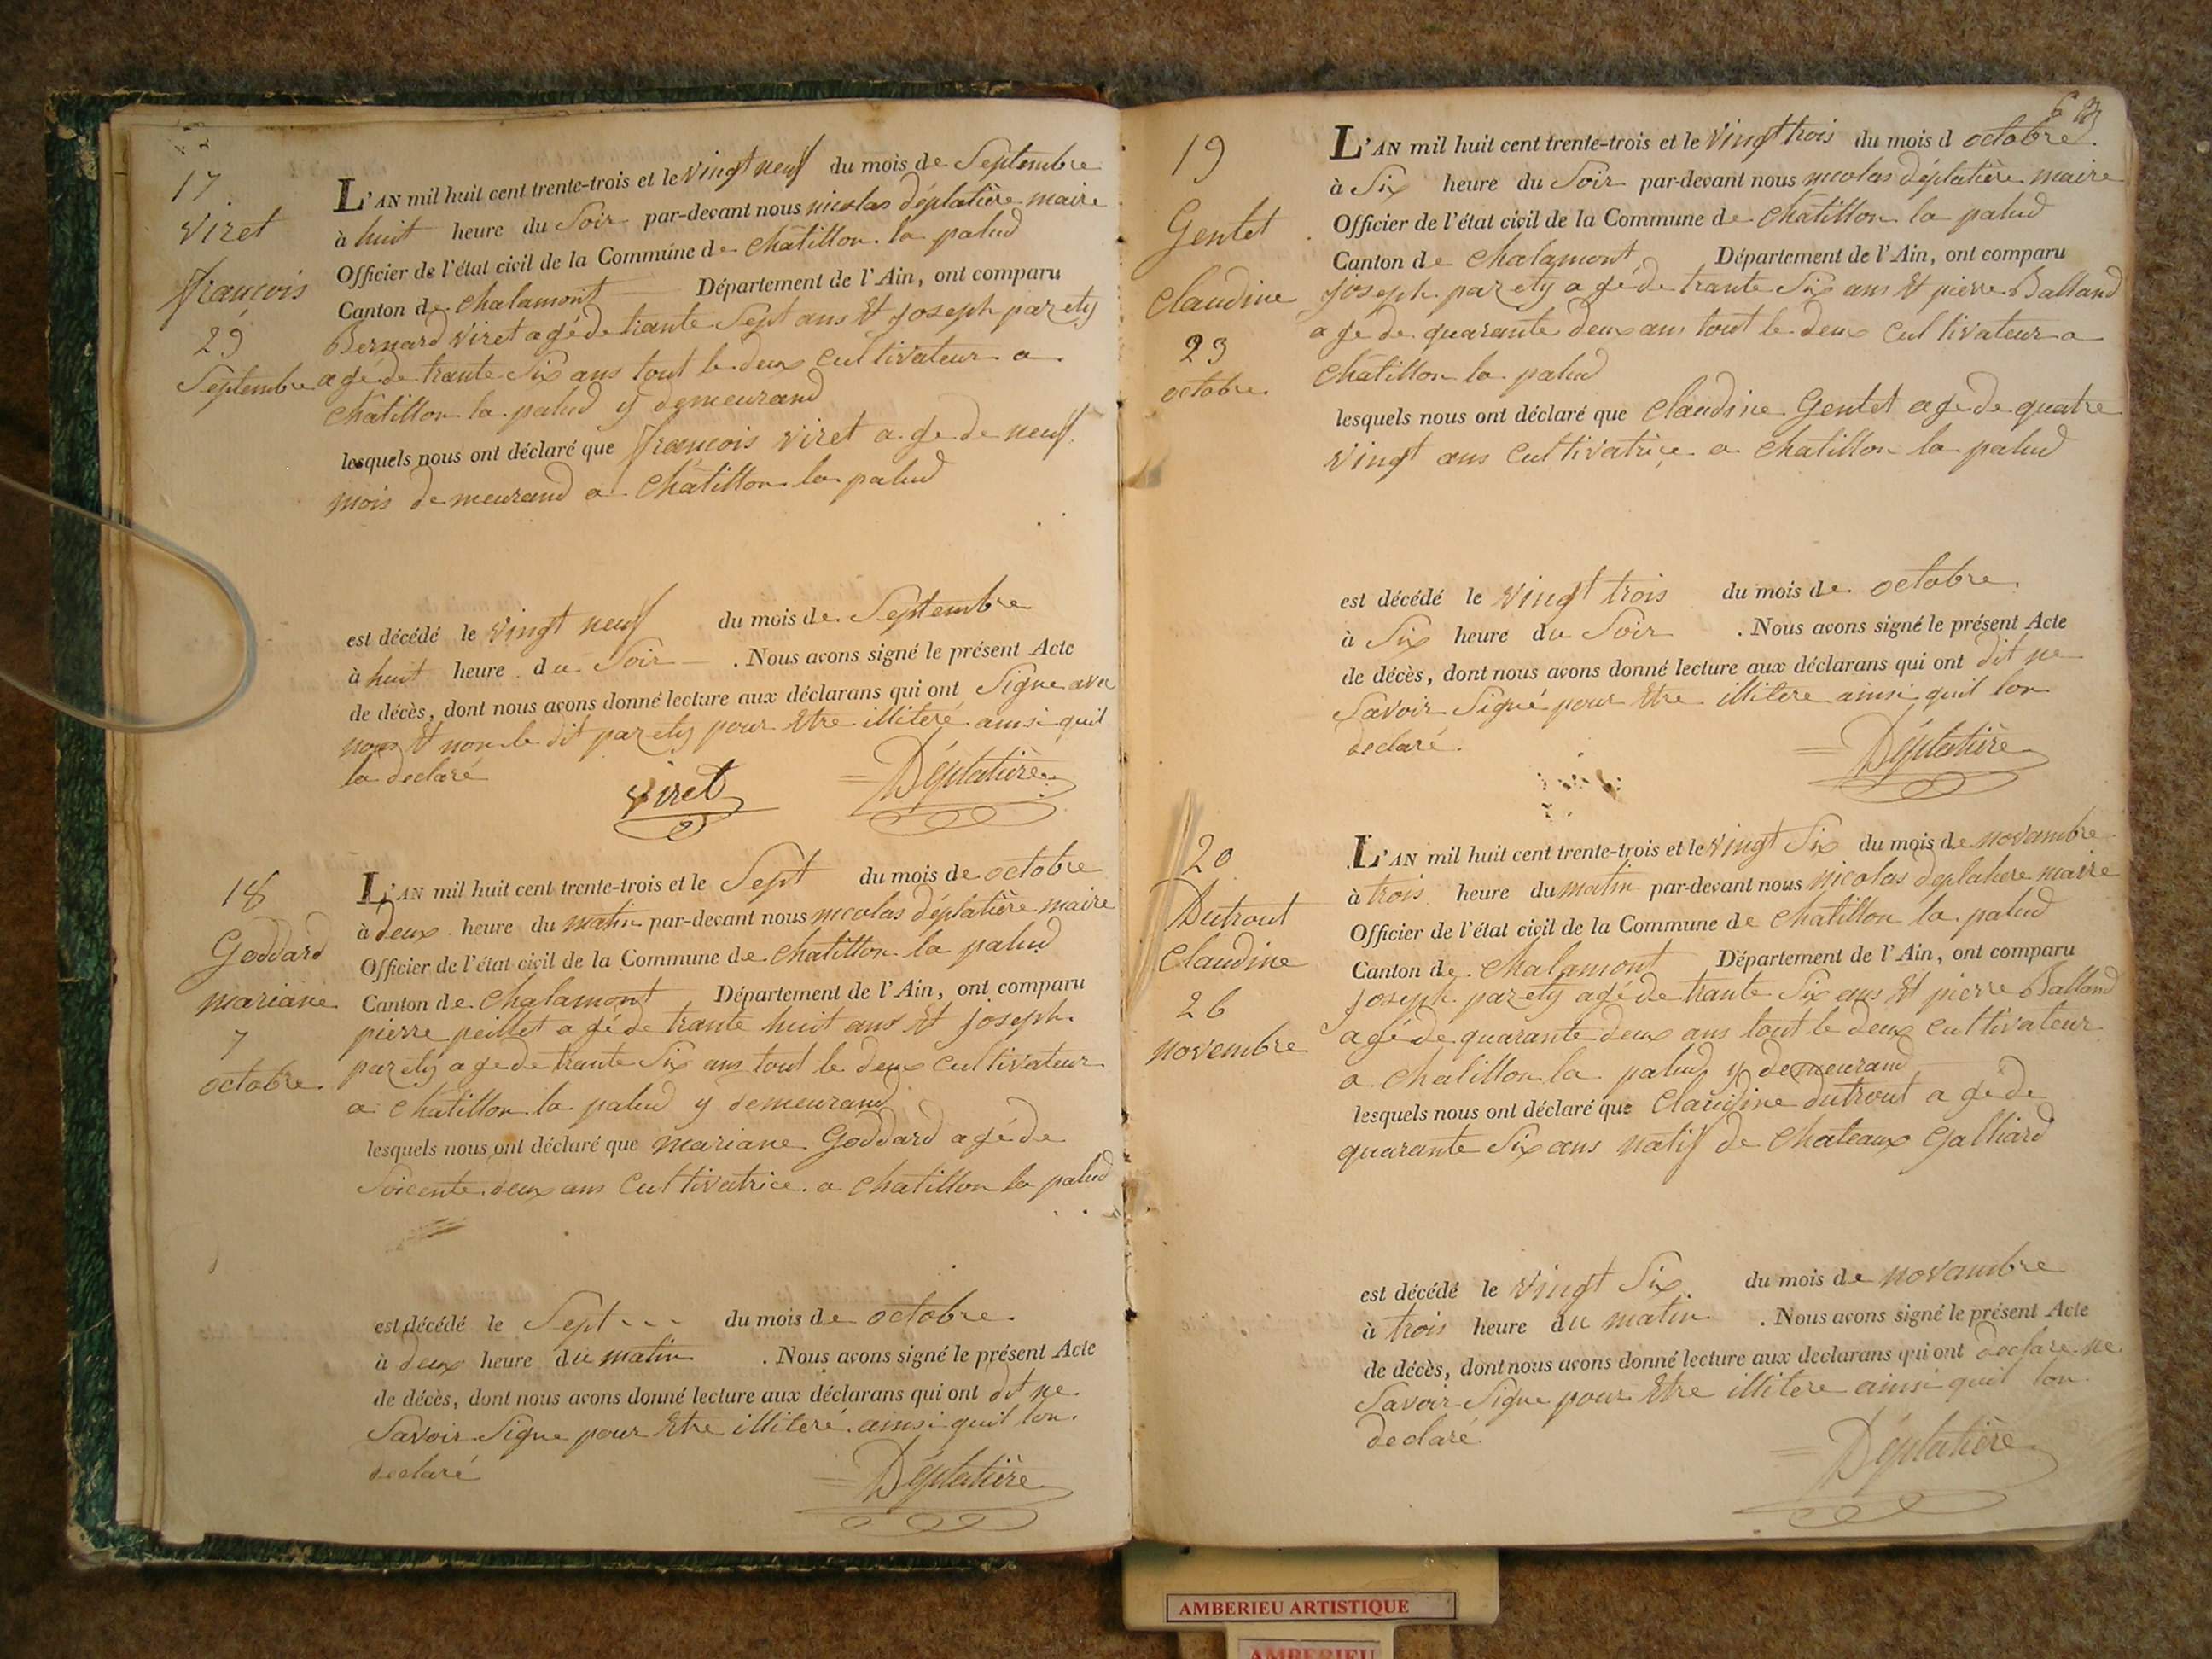 17
Viret
françois
29
Septembre
L'AN mil huit cent trente-trois et le vingt neuf du mois de Septembre
à huit heure du Soir par-devant nous nicolas déplatière maire
Officier de l'état civil de la Commune de châtillon la palud
Canton de chalamont Département de l'Ain, ont comparu
Bernard viret agé de trante Sept ans Et joseph parety
agé de trante Six ans tout le deux cultivateur a
châtillon la palud y demeurand
lesquels nous ont déclaré que françois viret agé de neuf
mois demeurand a châtillon la palud
est décédé le vingt neuf du mois de Septembre
à huit heure du Soir . Nous avons signé le présent Acte
de décès, dont nous avons donné lecture aux déclarans qui ont Signe avec
nous Et non le dit parety pour Etre illiteré ainsi quil
la declaré
viret Déplatière
18
Goddard
mariane
7
octobre
L'AN mil huit cent trente-trois et le Sept du mois de octobre
à deux heure du matin par-devant nous nicolas déplatière maire
Officier de l'état civil de la Commune de chatillon la palud
Canton de chalamont Département de l'Ain, ont comparu
pierre peillet agé de trante huit ans Et joseph
parety age de trante Six ans tout le deux cultivateur
a châtillon la palud y demeurand
lesquels nous ont déclaré que mariane Goddard agé de
Soicente deux ans cultivatrice a chatillon la palud
est décédé le Sept - - - du mois de octobre
à deux heure du matin . Nous avons signé le présent Acte
de décès, dont nous avons donné lecture aux déclarans qui ont dit ne
Savoir Signe pour Etre illiteré ainsi quil lon
declaré
Déplatière
19
Gentet
claudine
23
octobre
L'AN mil huit cent trente-trois et le vingt trois du mois d octobre
à Six heure du Soir par-devant nous nicolas déplatière maire
Officier de l'état civil de la Commune de châtillon la palud
Canton de chalamont Département de l'Ain, ont comparu
joseph parety agé de trante Six ans Et pierre Balland
age de quarante deux ans tout le deux cultivateur a
châtillon la palud
lesquels nous ont déclaré que claudine Gentet age de quatre
vingt ans cultivatriçe a chatillon la palud
est décédé le vingt trois du mois de octobre
à Six heure du Soir . Nous avons signé le présent Acte
de décès, dont nous avons donné lecture aux déclarans qui ont dit ne
Savoir Signé pour Etre illitere ainsi quil lon
declaré.
Déplatière
20
Dutrout
claudine
26
novembre
L'AN mil huit cent trente-trois et le vingt Six du mois de novambre
à trois heure du matin par-devant nous nicolas déplatiere maire
Officier de l'état civil de la Commune de chatillon la palud
Canton de chalamont Département de l'Ain, ont comparu
joseph parety agé de trante Six ans Et pierre Balland
agé de quarante deux ans tout le deux cultivateur
a chatillon la palud y demeurand
lesquels nous ont déclaré que claudine dutrout agé de
quarante Six ans natif de chateaux Galliard
est décédé le vingt Six du mois de novambre
à trois heure du matin . Nous avons signé le présent Acte
de décès, dont nous avons donné lecture aux declarans qui ont declare ne
Savoir Signe pour Etre illitere ainsi quil lon
declaré
Déplatière
AMBERIEU ARTISTIQUE
AMBERIEU